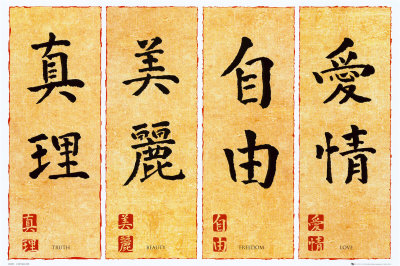 真理
美麗
自由
愛情
真理
TRUTH
美麗
BEAUTY
自由
FREEDOM
愛情
LOVE